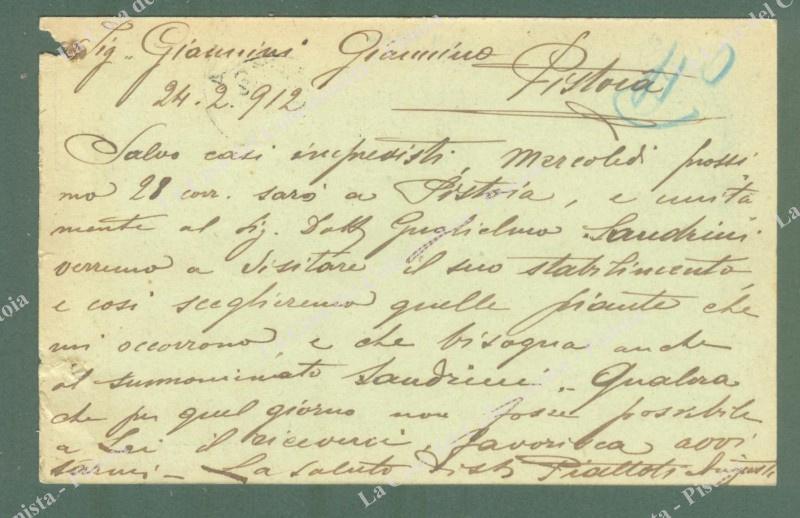 Sig. Giannini Giannino
Pistoia
24.2.912
Salvo casi imprevisti, Mercoledì prossi
mo 28 corr. sarò a Pistoia, e unita
mente al Sig. Dott Guglielmo Sandrini
verremo a visitare il suo stabilimento
e così sceglieremo quelle piante che
mi occorrono e che bisogna anche
al summominato Sandrini. Qualora
che per quel giorno non fosse possibile
a Lei il riceverci, favorisca avvi
sarmi - La saluto
Piattoli Augusto